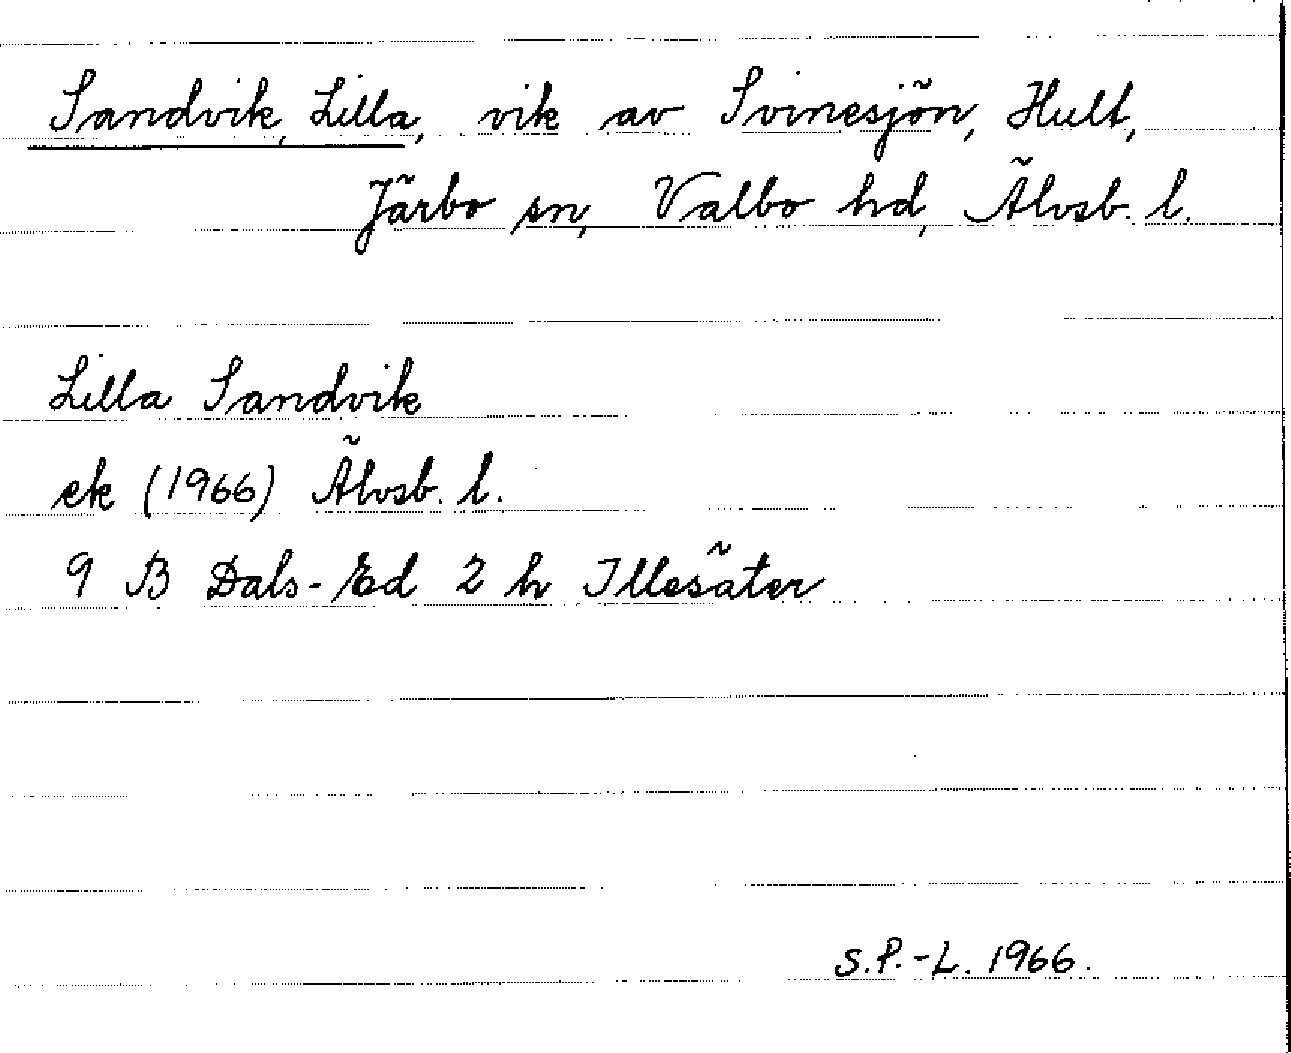 Sandvik, Lilla, vik av Svinesjön, Hult,
Järbo sn, Valbo hd, Älvsb. l.
Lilla Sandvik
ek (1966) Älvsb. l.
9 B Dals-Ed 2 h Illesäter
S.P.-L. 1966.